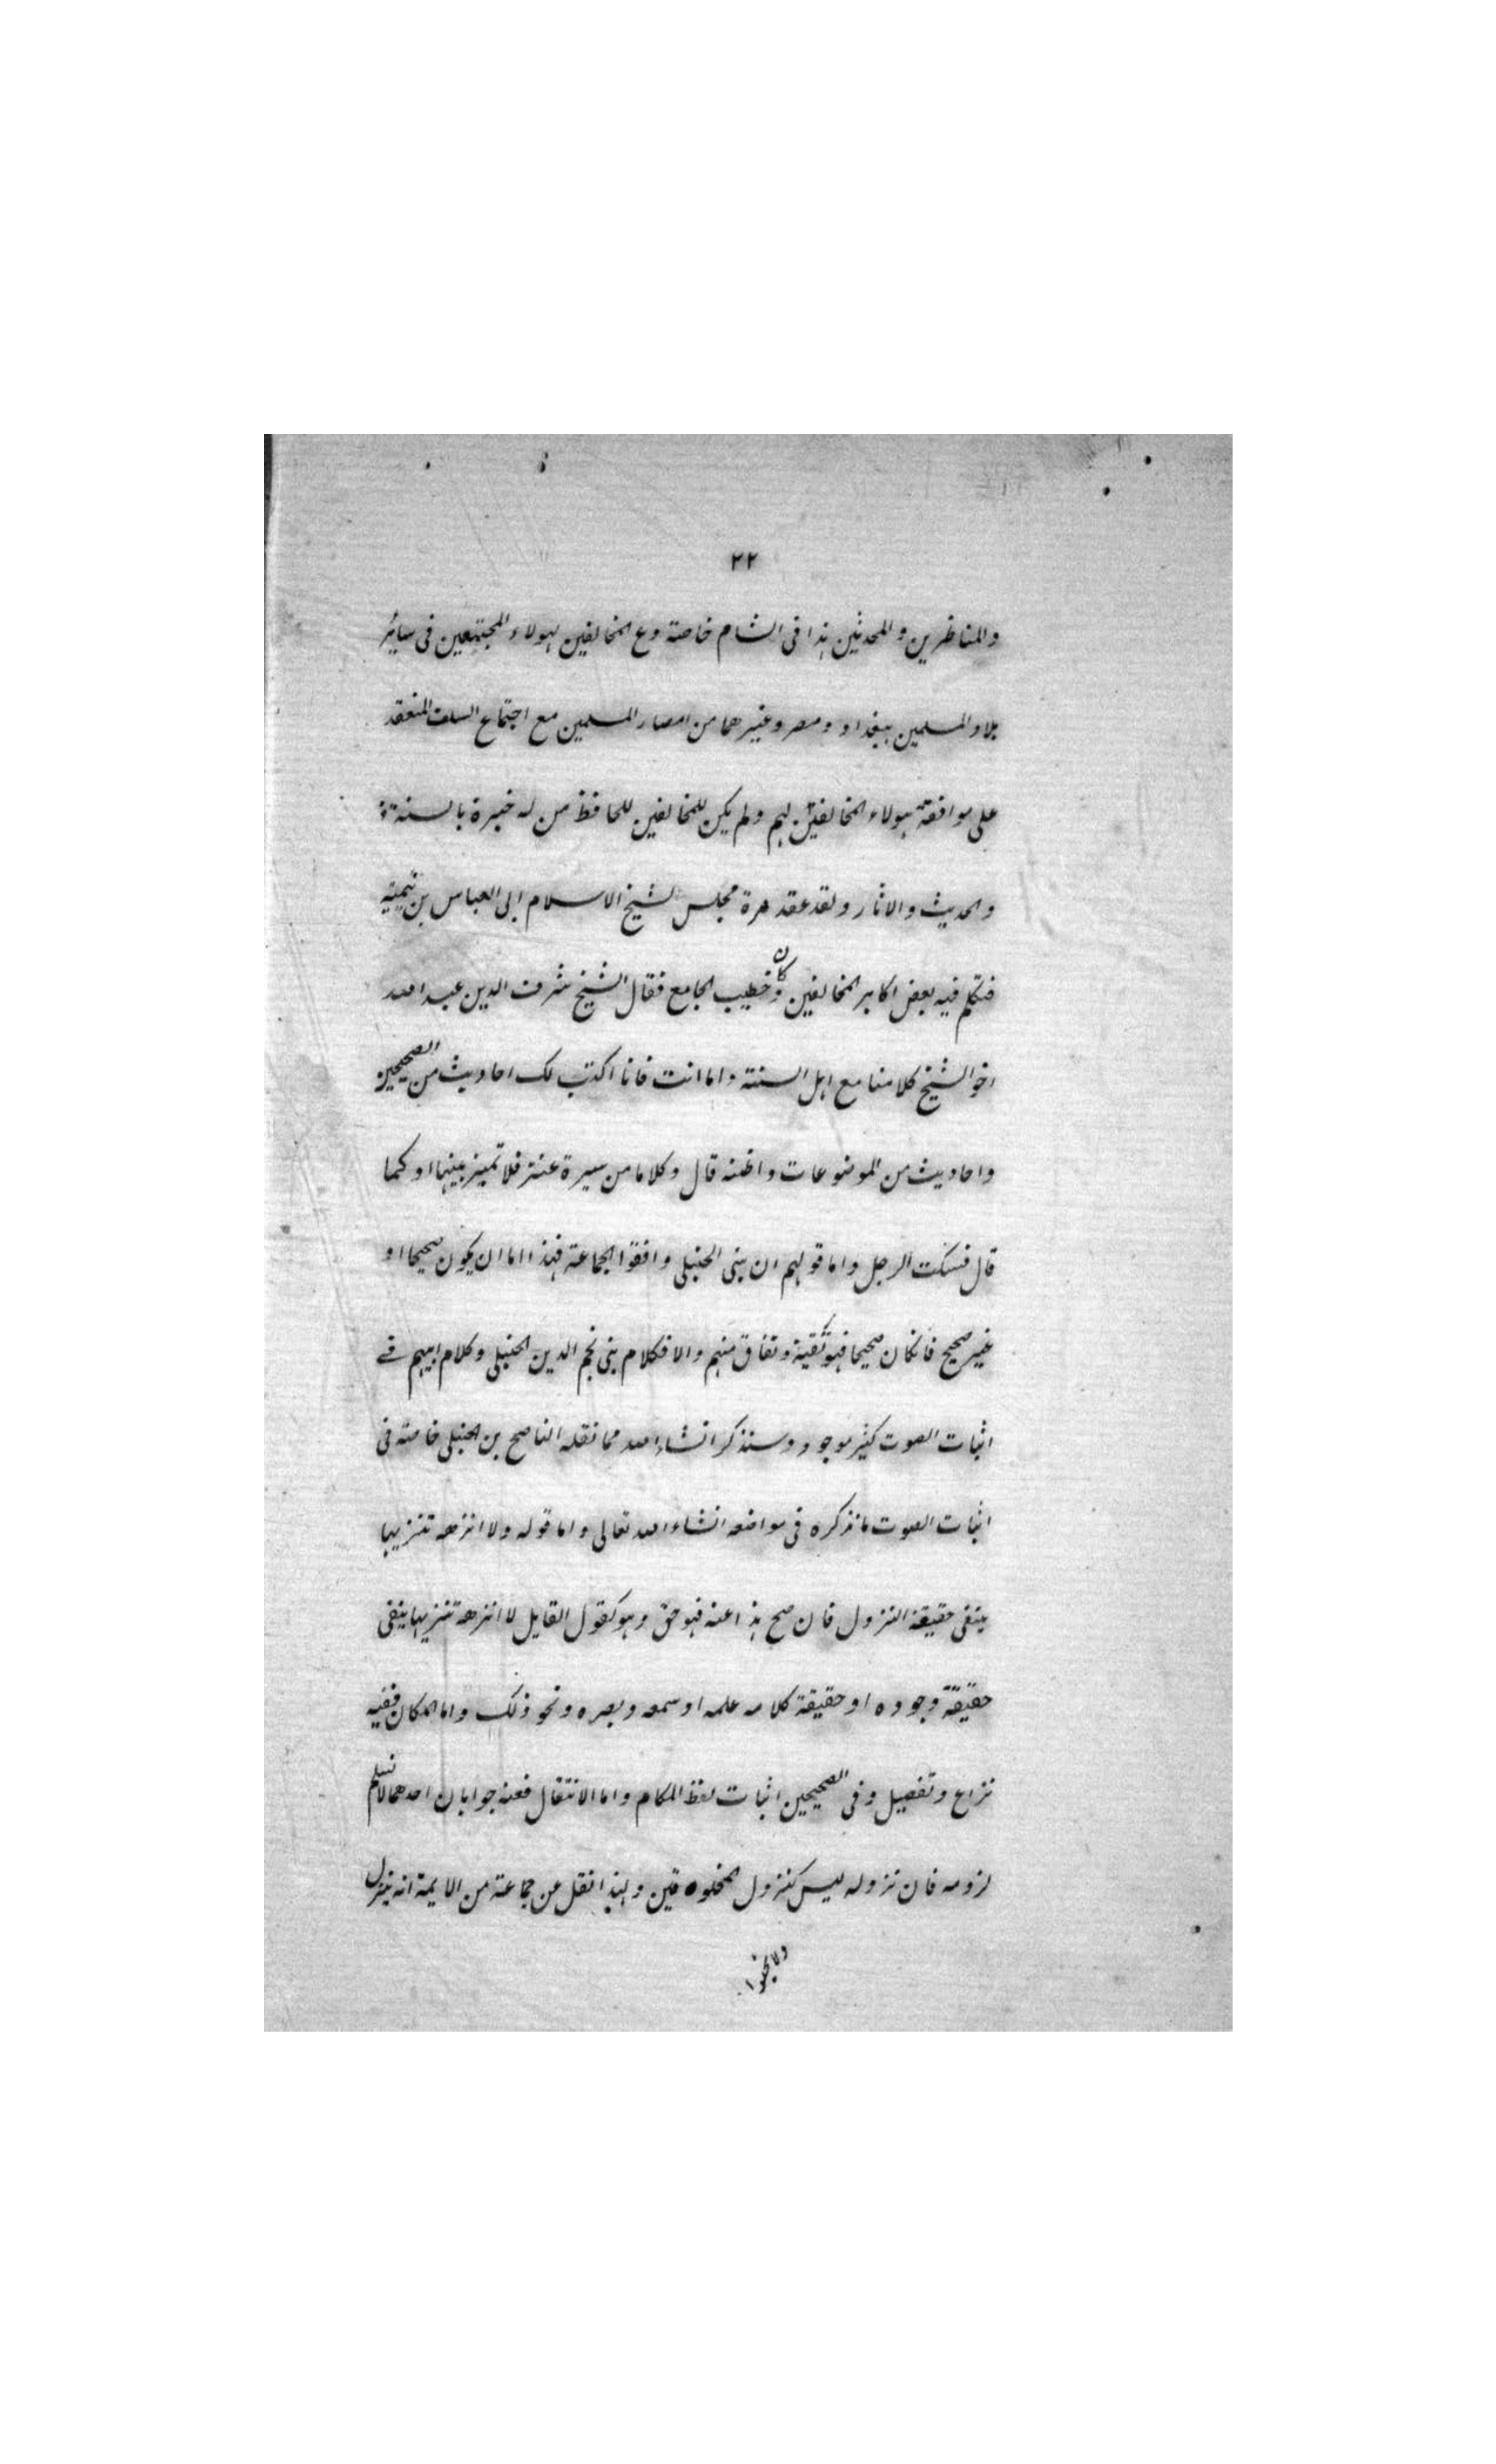 ٢٢
والمناظرين والمحدثين هذا فى الشام خاصة دع المخالفين لهولاء المجتمعين فى سائر
بلاد المسلمين ببغداد ومصر وغيرهما من امصار المسلمين مع اجتماع السلف المنعقد
على موافقة هولاء المخالفين لهم ولم يكن للمخالفين للحافظ من له خبرة بالسنة
والحديث والاثار ولقد عقد مرة مجلس لشيخ الاسلام ابى العباس بن تيمية
فتكلم فيه بعض اكابر المخالفين وكان خطيب الجامع فقال الشيخ شرف الدين عبد الله
اخو الشيخ كلامنا مع اهل السنة واما انت فانا اكتب لك احاديث من الصحيحين
واحاديث من الموضوعات واظنه قال وكلاما من سيرة عنتر فلا تميز بينها او كما
قال فسكت الرجل واما قولهم ان بنى الحنبلى وافقوا الجماعة فهذا اما ان يكون صحيحا او
غير صحيح فانكان صحيحا فهو تقية ونفاق منهم والا فكلام بنى نجم الدين الحنبلى وكلام ابيهم فے
اثبات الصوت كثير موجود وسنذكر انشاء الله مما نقله الناصح بن الحنبلى خاصة فى
اثبات الصوت ما نذكره فى مواضعه انشاء الله تعالى واما قوله ولا انزهه تنزيها
ينفى حقيقة النزول فان صح هذا عنه فهو حق وهو كقول القايل لا انزهه تنزيها ينفى
حقيقة وجوده او حقيقة كلامه علمه او سمعه وبصره ونحو ذلك واما المكان ففيه
نزاع وتفصيل وفى الصحيحين اثبات لفظ المكام واما الانتقال فعنه جوابان احدهما لا نسلم
لزومه فان نزوله ليس كنزول المخلوقين ولهذا نقل عن جماعة من الايمة انه ينزل
ولا يخلوا